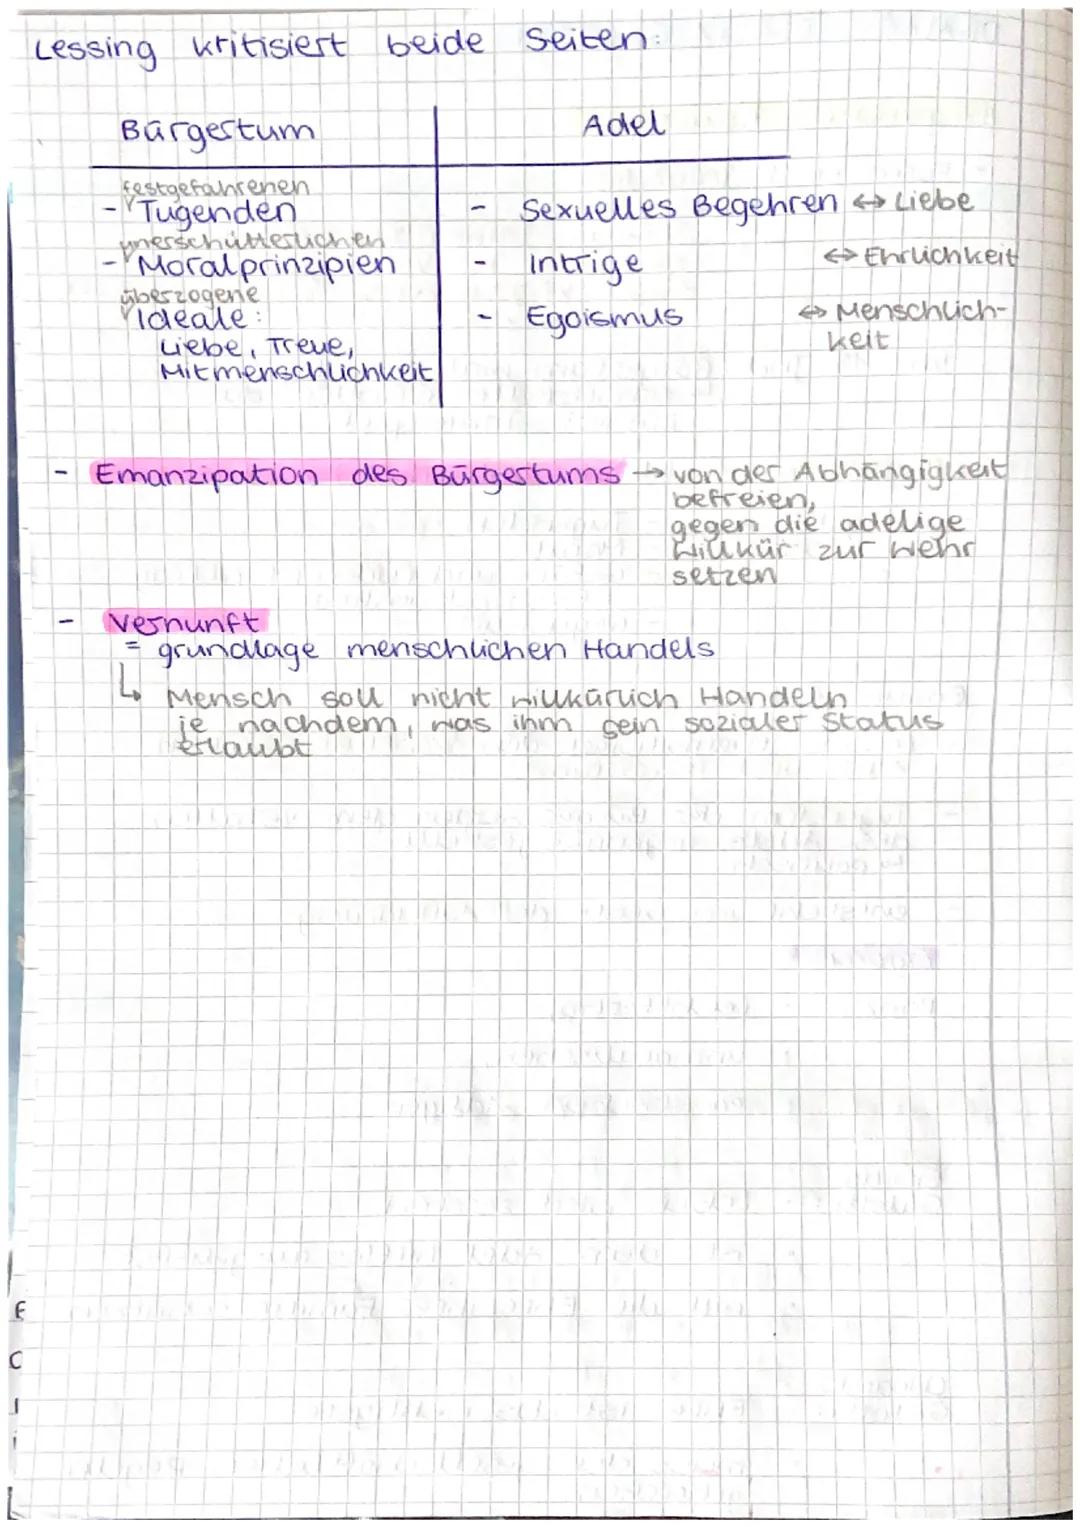 Lessing kritisiert beide Seiten:
Bürgertum
Adel
festgefahrenen
- Tugenden
unerschütterlichen
- Moralprinzipien
überzogene
Ideale:
Liebe, Treue,
Mitmenschlichkeit
- Sexuelles Begehren ↔ Liebe
- Intrige ↔ Ehrlichkeit
- Egoismus ↔ Menschlich-
keit
- Emanzipation des Bürgertums → von der Abhängigkeit
befreien,
gegen die adelige
Willkür zur Wehr
setzen
- Vernunft
= grundlage menschlichen Handels
↳ Mensch soll nicht willkürlich Handeln
je nachdem, was ihm sein sozialer Status
erlaubt